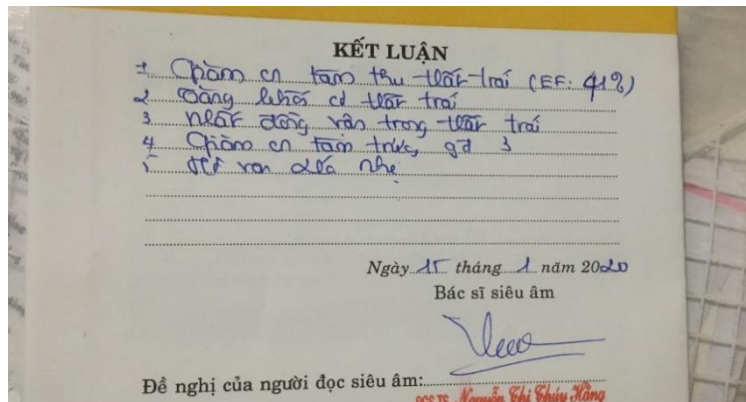 KẾT LUẬN
1 Giảm cn tâm thu thất trái (EF: 41%)
2 Tăng khối cơ thất trái
3 Mất đồng vận trong thất trái
4 Giảm cn tâm trương, gđ 3
5 van nhẹ
Ngày 15 tháng 1 năm 2020
Bác sĩ siêu âm
Đề nghị của người đọc siêu âm:
PGS.TS. Nguyễn Thị Thúy Hằng